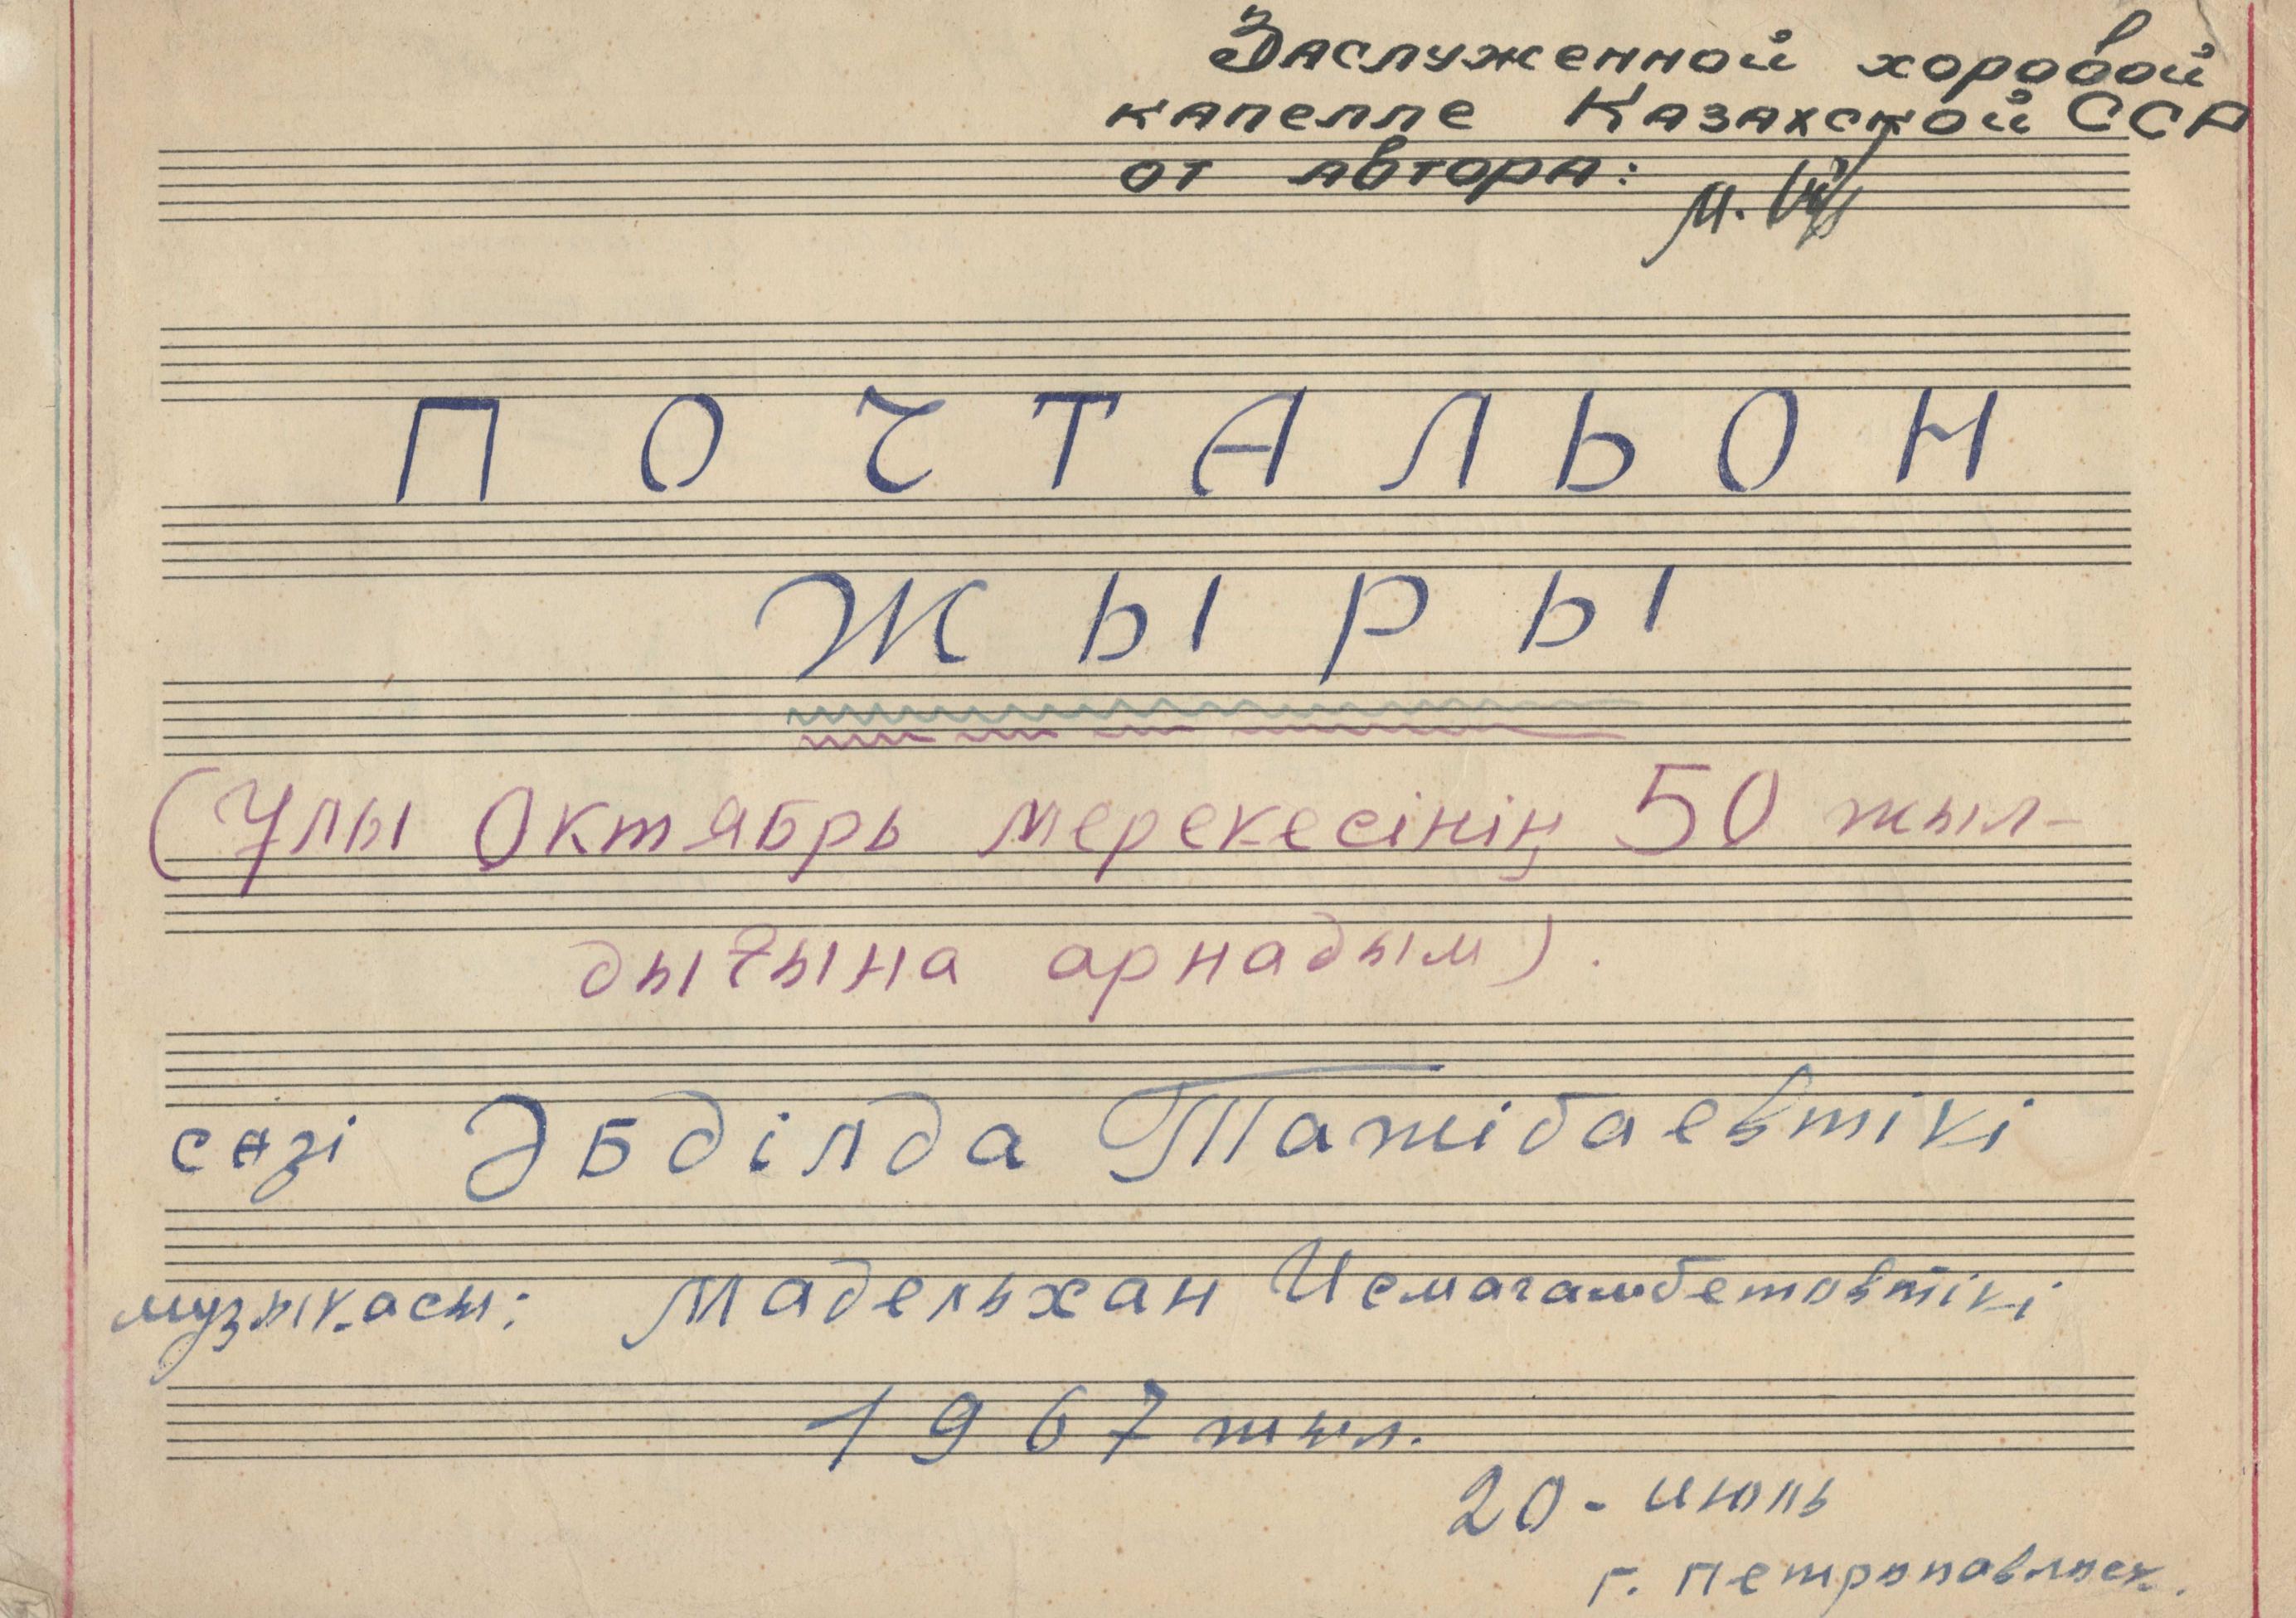 Заслуженной хоровой
капелле Казахской ССР
от автора:
ПОЧТАЛЬОН
ЖЫРЫ
(Ұлы Октябрь мерекесінің 50 жыл-
дығына арнадым).
сөзі Әбділда Тажібаевтікі
музыкасы: Мадельхан Исмагамбетовтікі
1967 жыл.
20 - июль
г. Петропавловск.